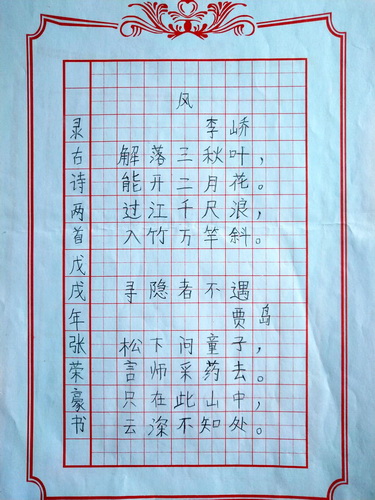 风
李峤
解落三秋叶，
能开二月花。
过江千尺浪，
入竹万竿斜。
寻隐者不遇
贾岛
松下问童子，
言师采药去。
只在此山中，
云深不知处。
录古诗两首戊戌年张荣豪书